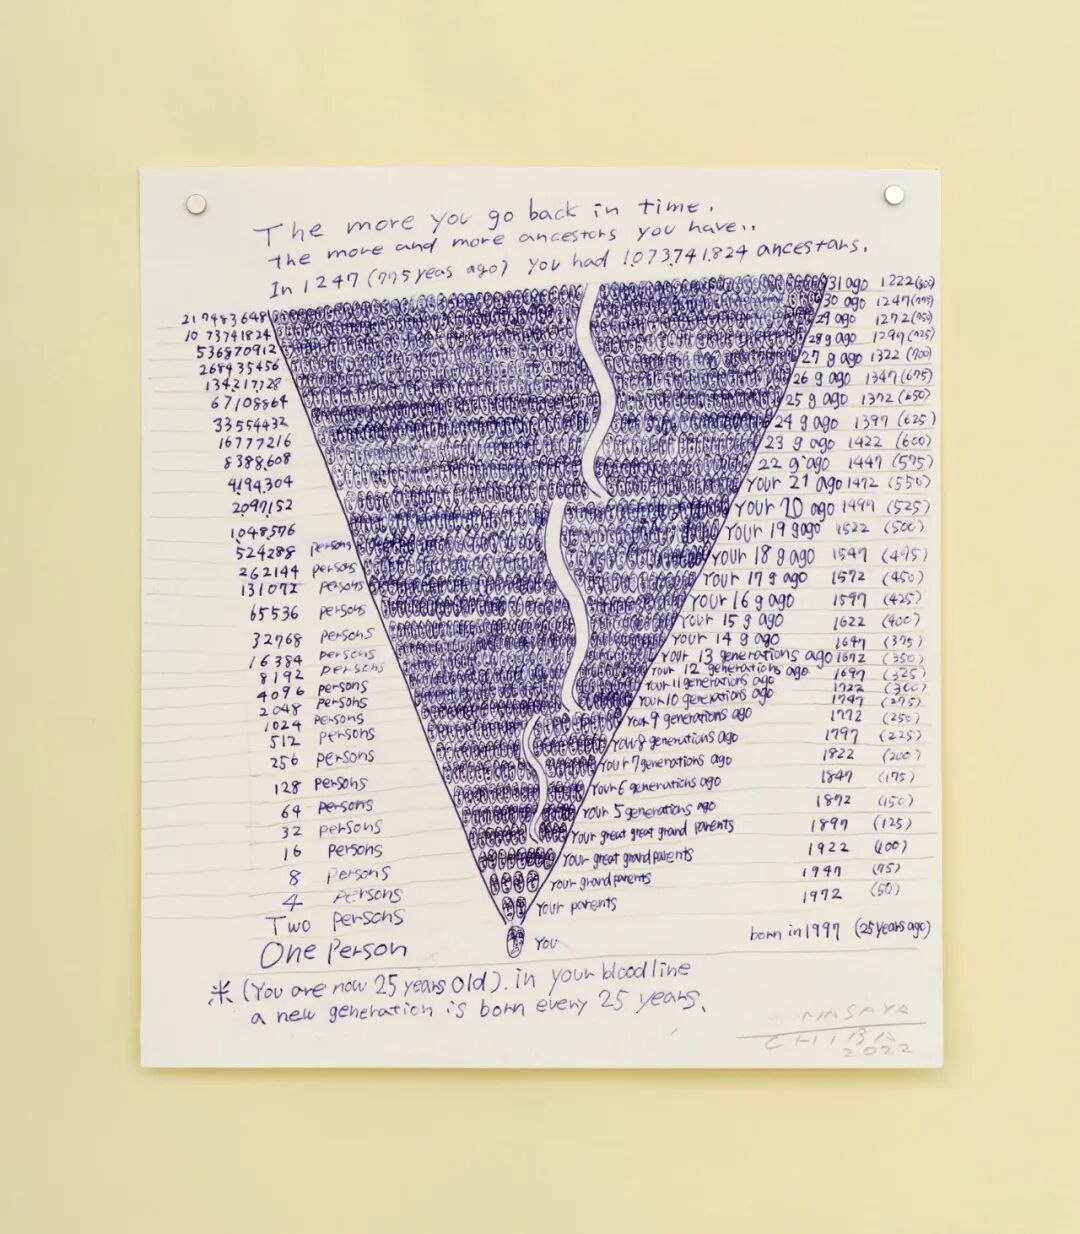 The more you go back in time.
the more and more ancestors you have..
In 1247 (775 yeas ago) you had 1,073,741,824 ancestars.
217483648
10 73741824
536870912
268435456
134217728
67108864
33554432
16777216
8388,608
4,194,304
2097,152
1,048,576
524288 persons
262144 persons
131072 persons
65536 persons
32768 persons
16384 persons
8192 persons
4096 persons
2048 persons
1024 persons
512 persons
256 persons
128 persons
64 persons
32 persons
16 persons
8 persons
4 persons
Two persons
One person
31 ago 1222 (800)
30 ago 1247 (775)
29 ago 1272 (750)
28 g ago 1297 (725)
27 g ago 1322 (700)
26 g ago 1347 (675)
25 g ago 1372 (650)
24 g ago 1397 (625)
23 g ago 1422 (600)
22 g ago 1447 (575)
Your 21 ago 1472 (550)
Your 20 ago 1497 (525)
Your 19 g ago 1522 (500)
Your 18 g ago 1547 (475)
Your 17 g ago 1572 (450)
Your 16 g ago 1597 (425)
Your 15 g ago 1622 (400)
Your 14 g ago 1647 (375)
Your 13 generations ago 1672 (350)
Your 12 generations ago 1697 (325)
Your 11 generations ago 1722 (300)
Your 10 generations ago 1747 (275)
Your 9 generations ago 1772 (250)
Your 8 generations ago 1797 (225)
Your 7 generations ago 1822 (200)
Your 6 generations ago 1847 (175)
Your 5 generations ago 1872 (150)
Your great great grand parents 1897 (125)
Your great grand parents 1922 (100)
Your grand parents 1947 (75)
Your parents 1972 (50)
You born in 1997 (25 years ago)
※ (You are now 25 years old). in your blood line
a new generation is born every 25 years.
MASAYA
CHIBA
2022